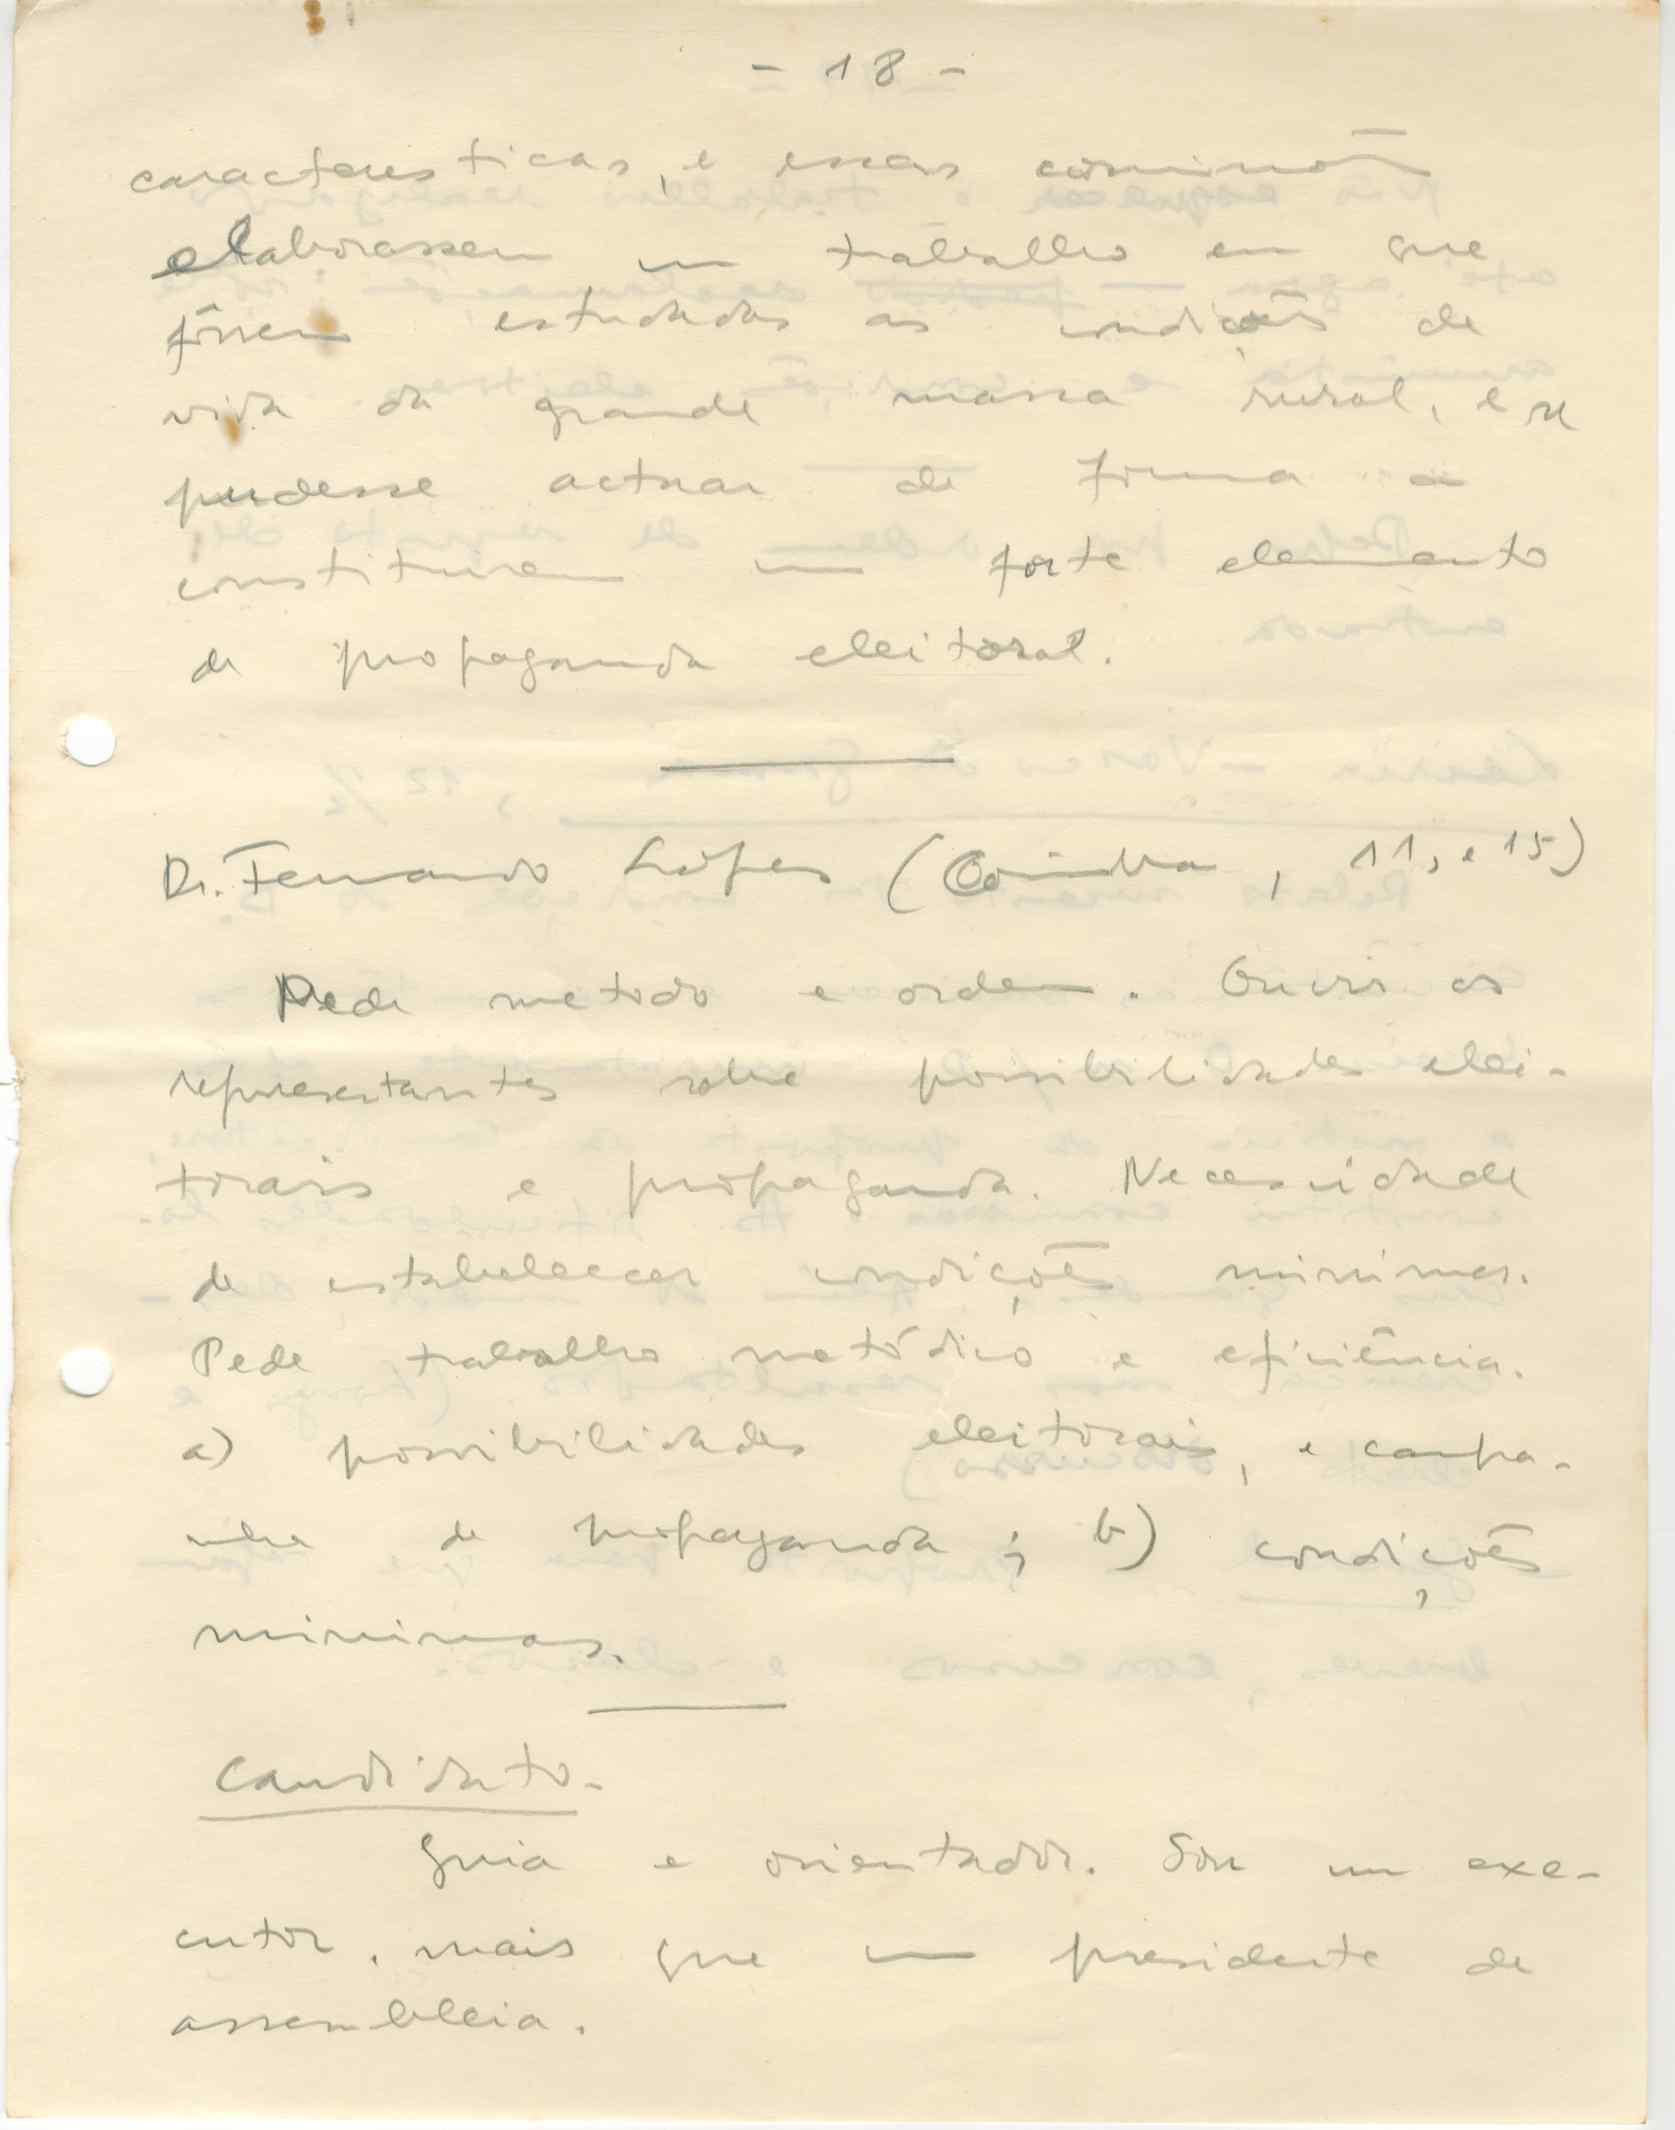 - 18 -
características, e essas comissões
elaborassem um trabalho em que
fôssem estudadas as condições de
vida da grande massa rural, e se
pudesse actuar de forma a
constituirem um forte elemento
de propaganda eleitoral.
Dr. Fernando Lopes (Coimbra, 11, e 15)
Pede metodo e ordem. Ouvir os
representantes sobre possibilidades elei-
torais e propaganda. Necessidade
de estabelecer condições minimas.
Pede trabalho metódico e eficiência.
a) possibilidades eleitorais, e campa-
nha de propaganda; b) condições
minimas.
Candidato-
Guia e orientador. Sou um exe-
cutor, mais que um presidente de
assembleia.